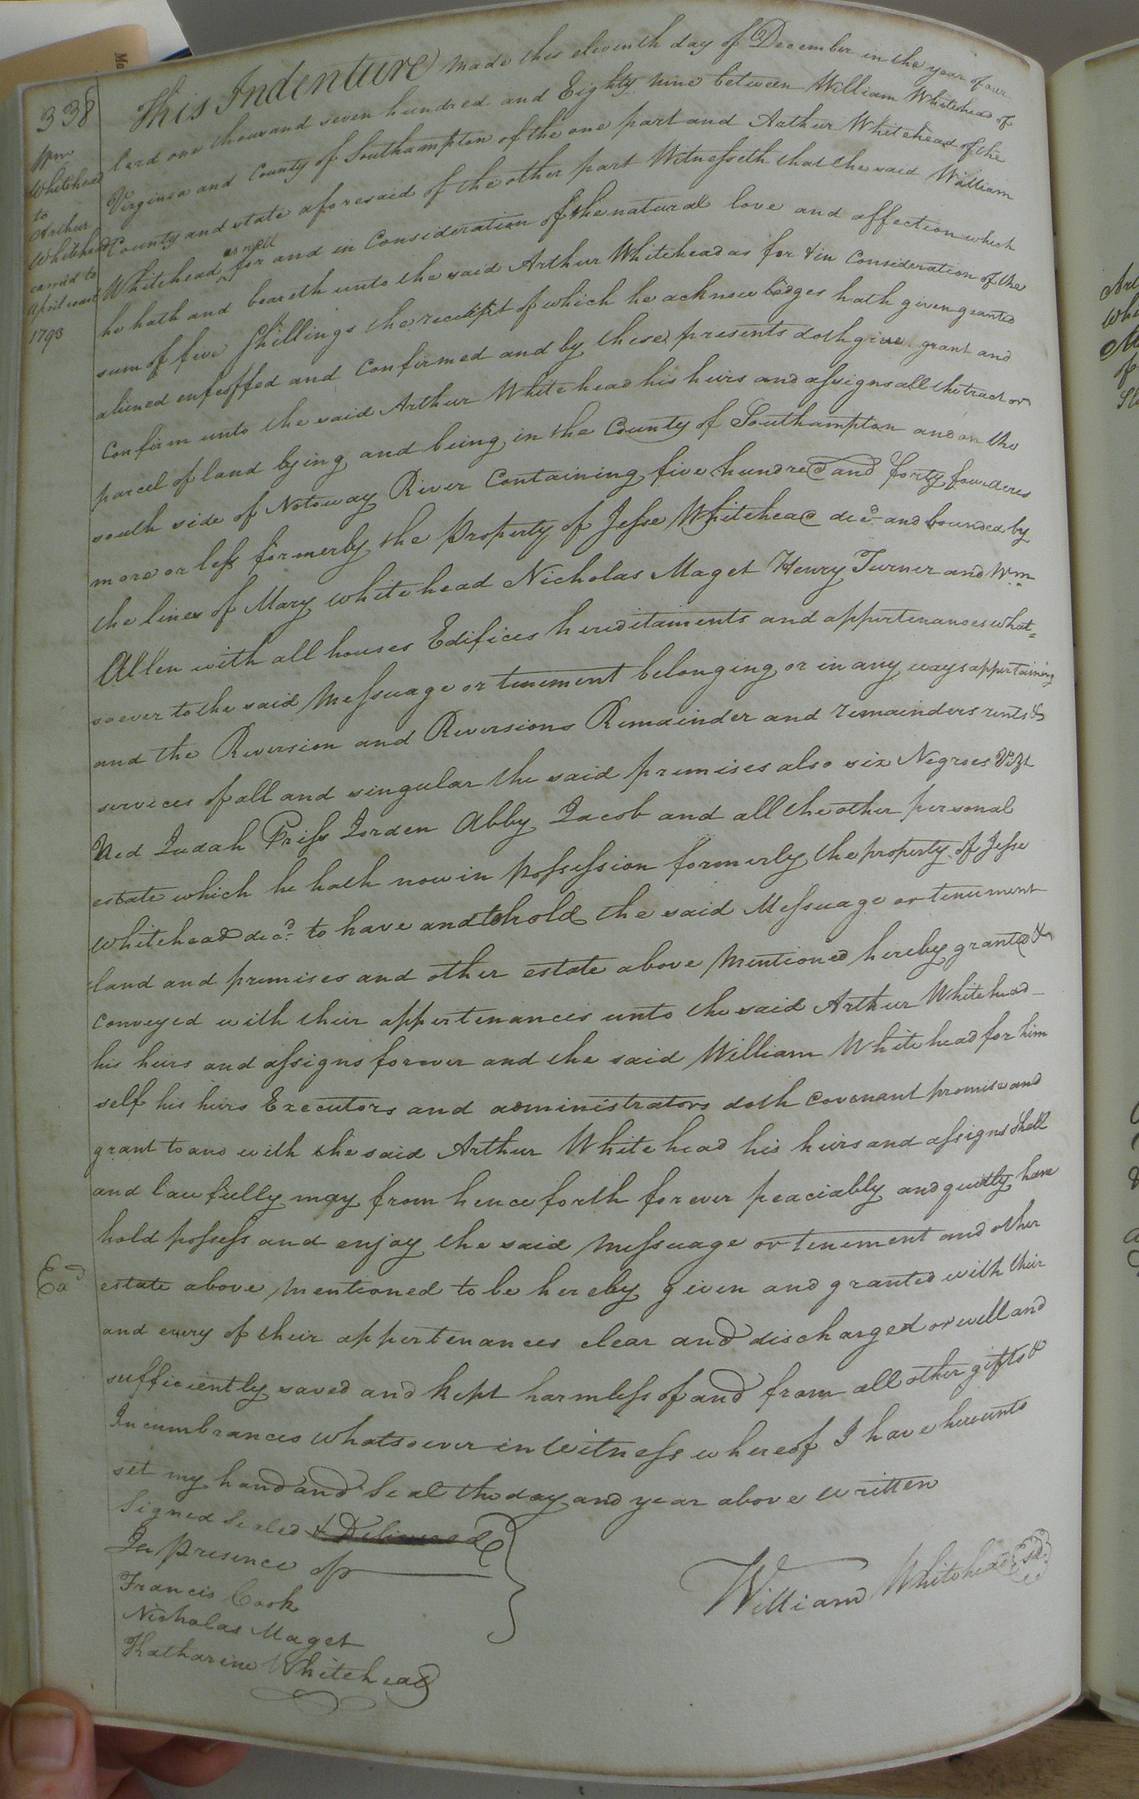 338
This Indenture made this eleventh day of December in the year of our
lord one thousand seven hundred and Eighty nine between William Whitehead of
Virginia and County of Southampton of the one part and Arthur Whitehead of the
County and state aforesaid of the other part Witnesseth that the said William
Whitehead as well for and in Consideration of the natural love and affection which
he hath and beareth unto the said Arthur Whitehead as for & in Consideration of the
sum of five Shillings the receipt of which he acknowledges hath given granted
aliened enfeoffed and Confirmed and by these presents doth give grant and
Confirm unto the said Arthur Whitehead his heirs and assigns all the tract or
parcel of land lying and being in the County of Southampton and on the
south side of Notoway River Containing five hundred and forty four acres
more or less formerly the Property of Jesse Whitehead decd and bounded by
the lines of Mary Whitehead Nicholas Maget Henry Turner and Wm
Allen with all houses Edifices hereditaments and appertenances what=
soever to the said Messuage or tenement belonging or in any ways appertaining
and the Reversion and Reversions Remainder and remainders rents &
services of all and singular the said premises also six Negroes Vizt
Ned Judah Priss Jorden Abby Jacob and all the other personal
estate which he hath now in possession formerly the property of Jesse
Whitehead decd to have and to hold the said Messuage or tenement
land and premises and other estate above Mentioned hereby granted &
Conveyed with their appertenances unto the said Arthur Whitehead
his heirs and assigns forever and the said William Whitehead for him
self his heirs Executors and administrators doth Covenant promise and
grant to and with the said Arthur Whitehead his heirs and assigns Shall
and lawfully may from hence forth forever peaciably and quietly have
hold possess and enjoy the said Messuage or tenement and other
estate above Mentioned to be hereby given and granted with their
and every of their appertenances clear and discharged or well and
sufficiently saved and kept harmless of and from all other gifts &
Incumbrances whatsoever in Witness whereof I have hereunto
set my hand and Seal the day and year above written
Signed Sealed & Delivered
In Presence of
Francis Cook
Nicholas Maget
Katharine Whitehead
William Whitehead Sd.
Wm
Whitehead
to
Arthur
Whitehead
carried to
April court
1793
Exd